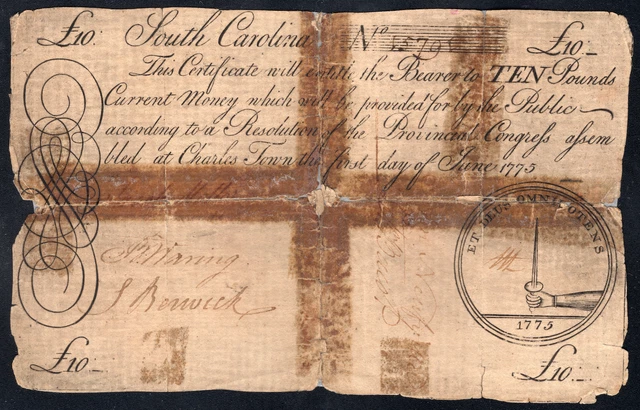 £10: South Carolina No 1579 £10:
This Certificate will entitle the Bearer to TEN Pounds
Current Money which will be provided for by the Public
according to a Resolution of the Provincial Congress assem
bled at Charles Town the first day of June 1775
ET DEUS OMNIPOTENS
1775
Waring
J Berwick
£10: £10: